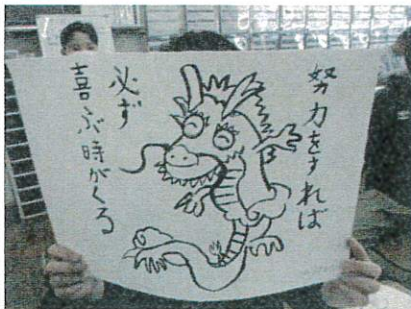 努力をすれば
必ず
喜ぶ時がくる